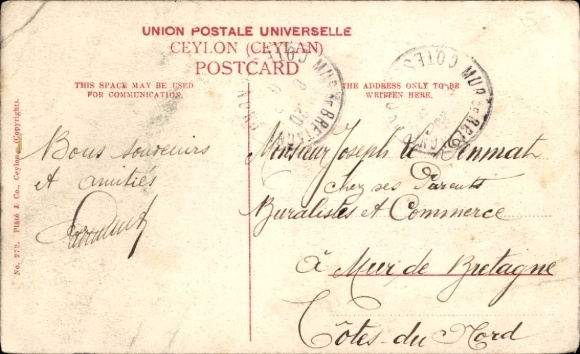 UNION POSTALE UNIVERSELLE
CEYLON (CEYLAN)
POSTCARD
THIS SPACE MAY BE USED
FOR COMMUNICATION.
THE ADDRESS ONLY TO BE
WRITTEN HERE.
Bons souvenirs
et amitiés
Monsieur Joseph Le
chez ses Parents
Buralistes et Commerce
à Mur de Bretagne
Côtes-du Nord
No. 272. Plâté & Co., Ceylon. (Copyright).
MUR DE BRETAGNE
COTES
MUR DE BRETAGNE